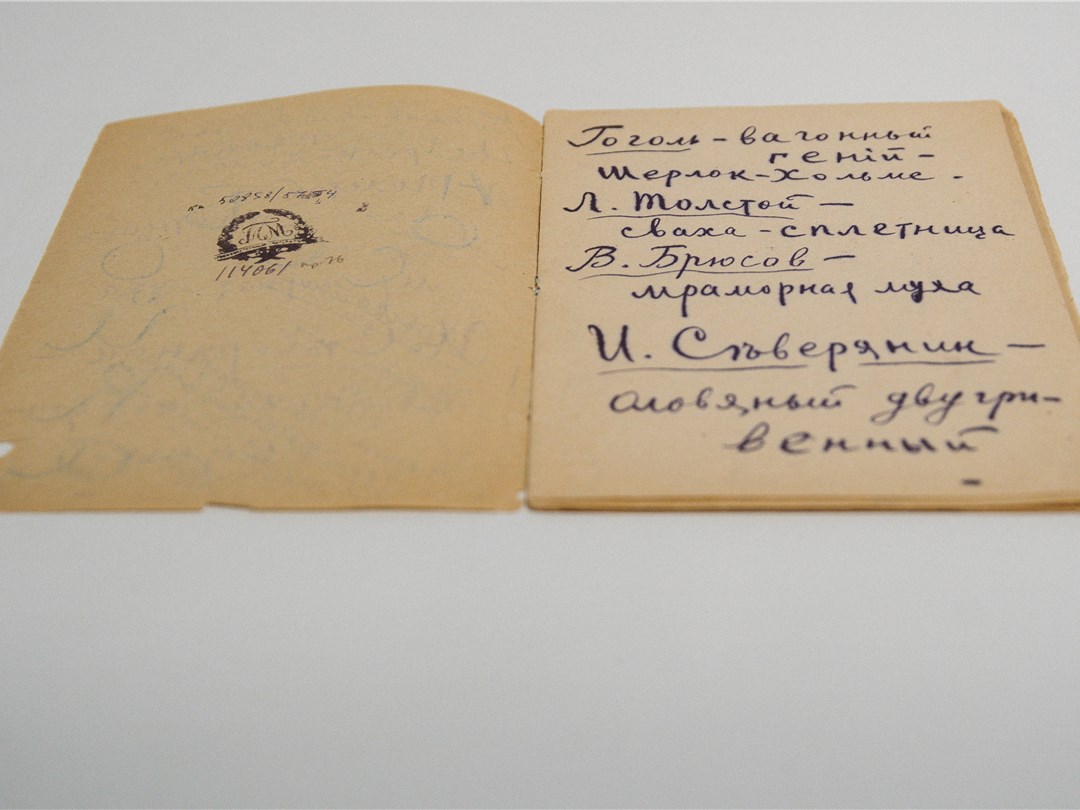 кп 50858/
ГЛМ
11406/
Гоголь – вагонный
геній –
Шерлок-Хольмс.
Л. Толстой –
сваха – сплетница
В. Брюсов –
мраморная муха
И. Съверянин –
оловяный двугри-
венный